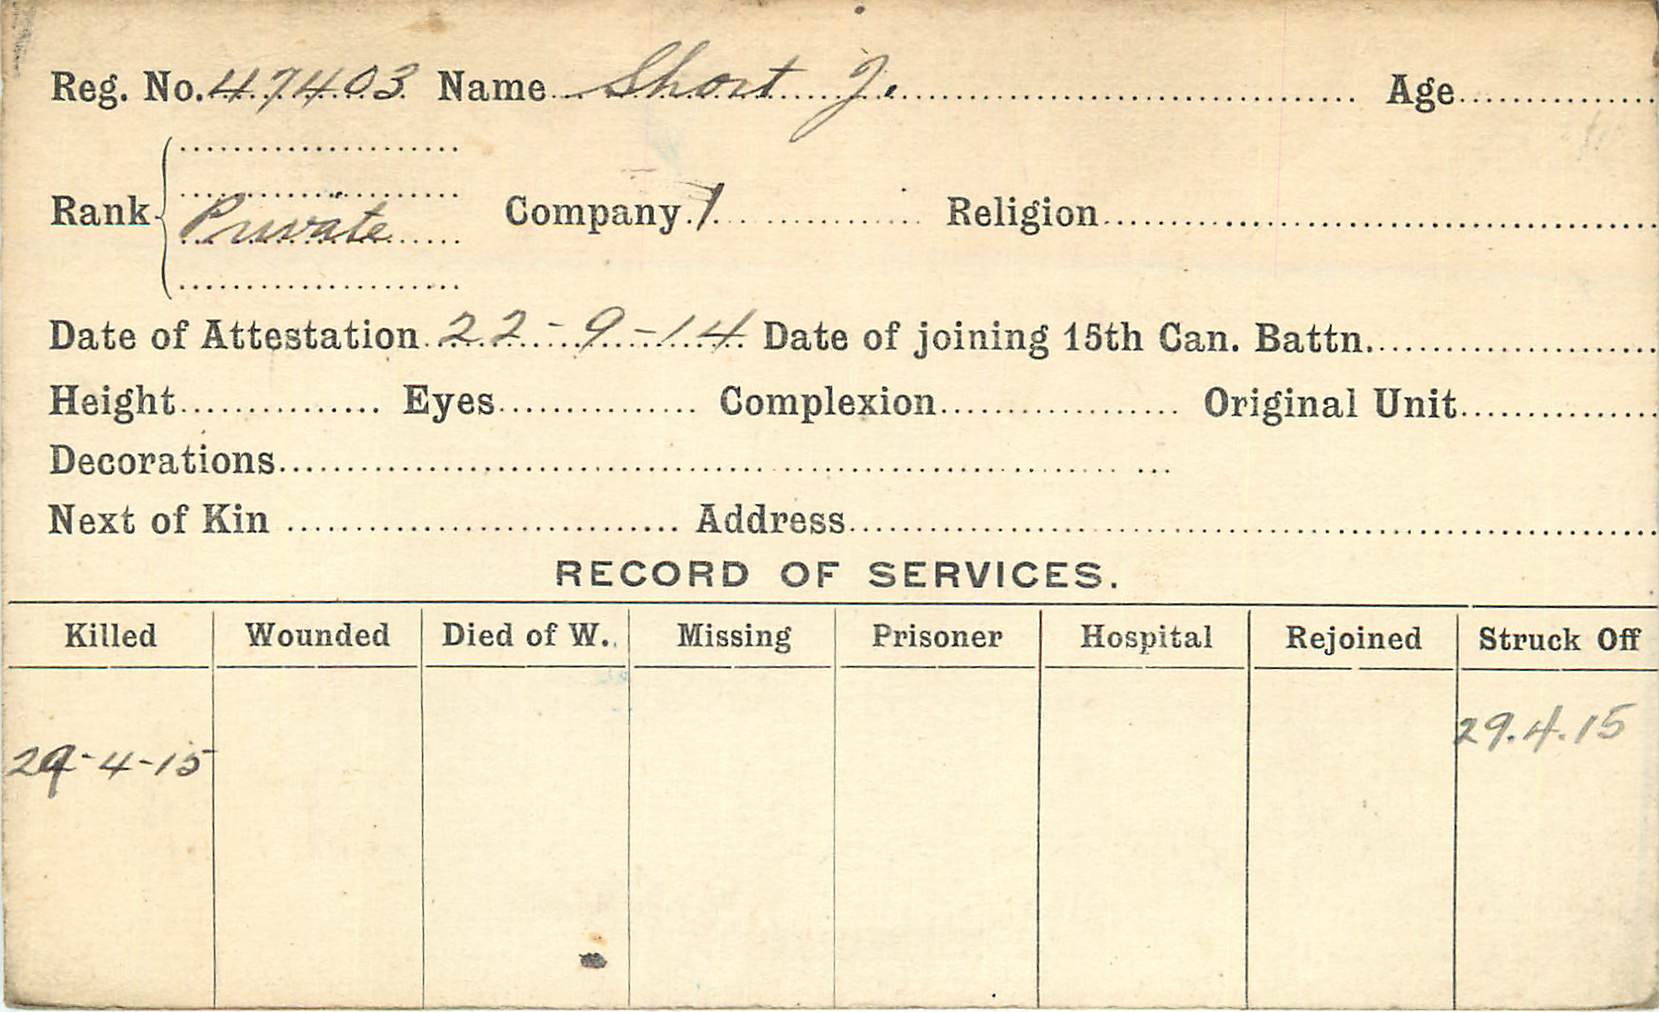 Reg. No. 47403 Name Short J. Age
Rank Private Company 1 Religion
Date of Attestation 22-9-14 Date of joining 15th Can. Battn.
Height Eyes Complexion Original Unit
Decorations
Next of Kin Address
RECORD OF SERVICES.
Killed Wounded Died of W. Missing Prisoner Hospital Rejoined Struck Off
29.4.15
29-4-15